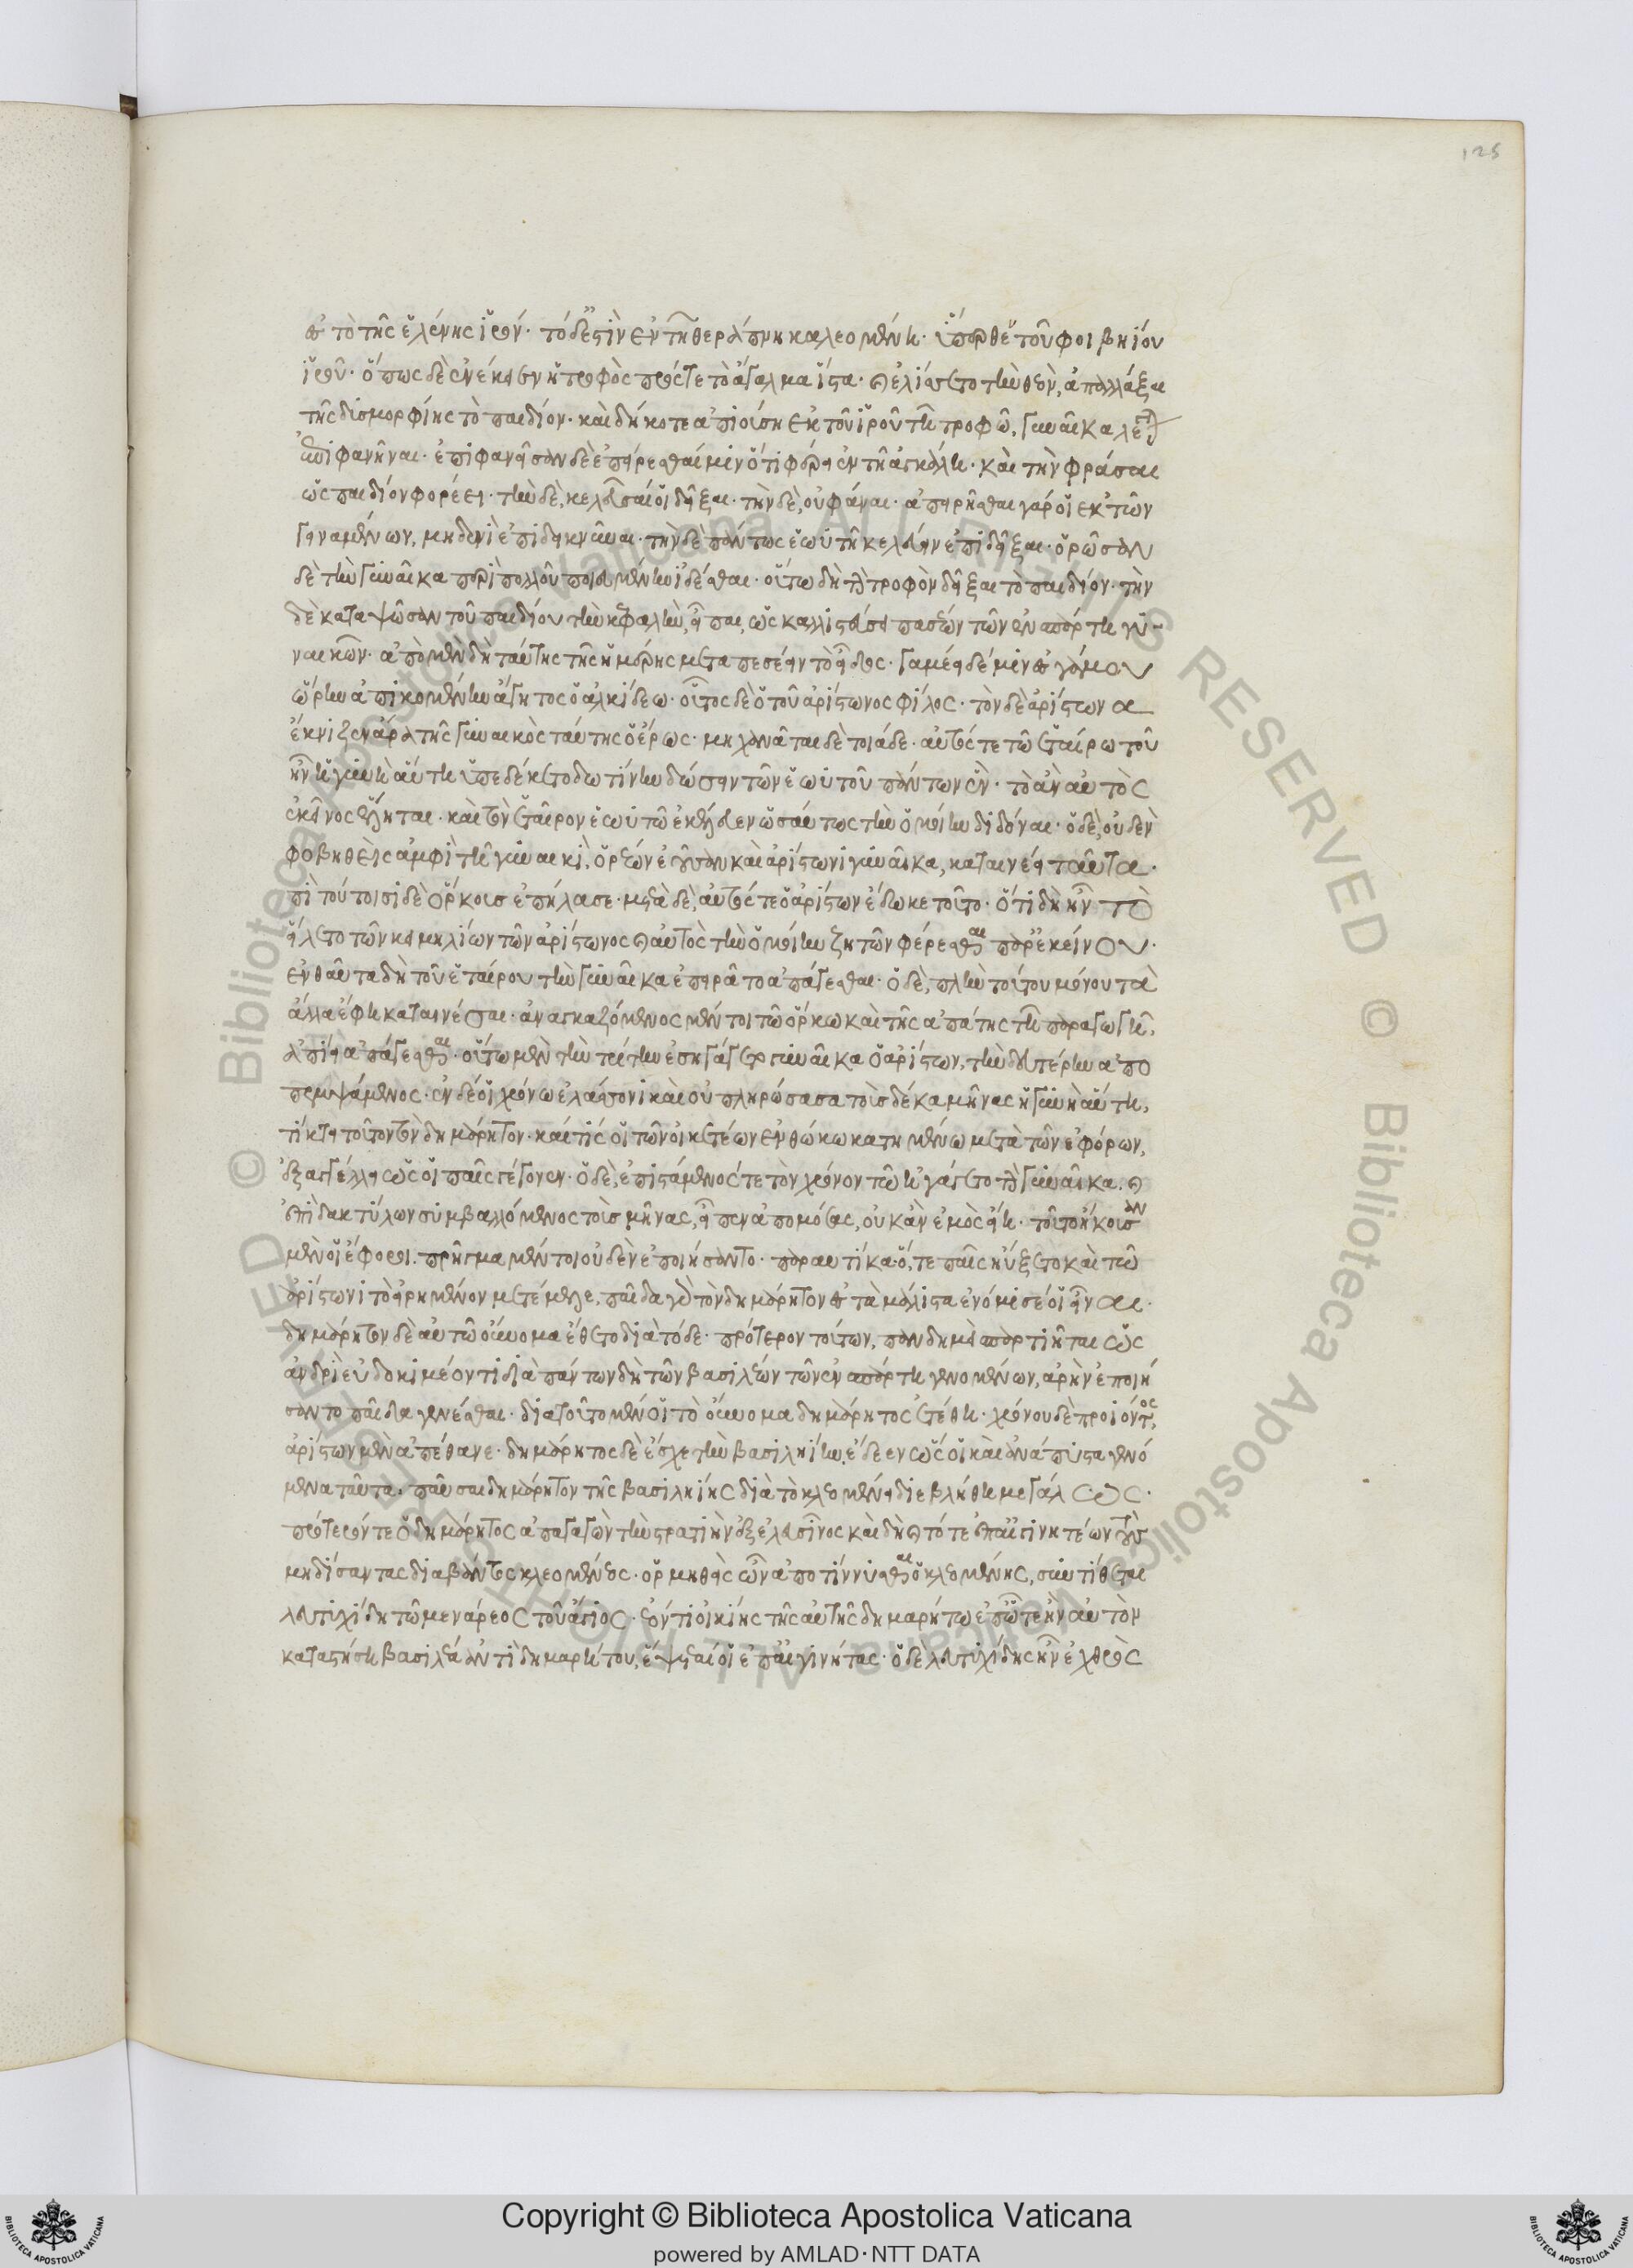 125
ἐς τὸ τῆς ἑλένης ἱρόν· τὸ δ' ἐστὶν ἐν τῆ θεράπνη καλεομένη· ὕπερθε τοῦ φοιβηίου
ἱροῦ· ὅκως δὲ ἐνείκειεν ἡ τροφὸς πρός τε τὸ ἄγαλμα ἵστα· καὶ ἐλίσσετο τὴν θεὸν, ἀπαλλάξαι
τῆς δυσμορφίης τὸ παιδίον· καὶ δή κοτε ἀπιούση ἐκ τοῦ ἱροῦ τῆ τροφῶ, γυναῖκα λέγεται
ἐπιφανῆναι· ἐπιφανεῖσαν δὲ ἐπείρεσθαί μιν ὅτι φέρει ἐν τῆ ἀγκάλη· καὶ τὴν φράσαι
ὡς παιδίον φορέει· τὴν δὲ, κελεῦσαί οἱ δεῖξαι· τὴν δὲ, οὐ φάναι· ἀπειρῆσθαι γάρ οἱ ἐκ τῶν
γειναμένων, μηδενὶ ἐπιδεικνύναι· τὴν δὲ πάντως ἑωυτῆ κελεύειν ἐπιδεῖξαι· ὁρῶσαν
δὲ τὴν γυναῖκα περὶ πολλοῦ ποιευμένην ἰδέσθαι· οὕτω δὴ τὴν τροφὸν δεῖξαι τὸ παιδίον· τὴν
δὲ καταψῶσαν τοῦ παιδίου τὴν κεφαλὴν, εἶπαι, ὡς καλλιστεύσει πασέων τῶν ἐν σπάρτη γυ-
ναικῶν· ἀπὸ μὲν δὴ ταύτης τῆς ἡμέρης μεταπεσέειν τὸ εἶδος· γαμέει δέ μιν ἐς γάμου
ὥρην ἀπικομένην ἄγητος ὁ ἀλκίδεω· οὗτος δὲ ὁ τοῦ ἀρίστωνος φίλος· τὸν δὲ ἀρίστωνα
ἔκνιζεν ἄρα τῆς γυναικὸς ταύτης ὁ ἔρως· μηχανᾶται δὲ τοιάδε· αὐτός τε τῶ ἑταίρω τοῦ
ἦν ἡ γυνὴ αὕτη ὑπεδέκετο δωτίνην δώσειν τῶν ἑωυτοῦ πάντων ἓν· τὸ ἂν αὐτὸς
ἐκεῖνος ἕληται· καὶ τὸν ἑταῖρον ἑωυτῶ ἐκέλευεν ὡσαύτως τὴν ὁμοίην διδόναι· ὁ δὲ, οὐδὲν
φοβηθεὶς ἀμφὶ τῆ γυναικὶ, ὁρέων ἐοῦσαν καὶ ἀρίστωνι γυναῖκα, καταινέει ταῦτα·
ἐπὶ τούτοισι δὲ ὅρκους ἐπήλασε· μετὰ δὲ, αὐτός τε ὁ ἀρίστων ἔδωκε τοῦτο· ὅτι δὴ ἦν τὸ
εἵλετο τῶν κειμηλίων τῶν ἀρίστωνος καὶ αὐτὸς τὴν ὁμοίην ζητῶν φέρεσθαι παρ' ἐκείνου·
ἐνθαῦτα δὴ τοῦ ἑταίρου τὴν γυναῖκα ἐπειρᾶτο ἀπάγεσθαι· ὁ δὲ, πλὴν τούτου μούνου τὰ
ἄλλα ἔφη καταινέσαι· ἀναγκαζόμενος μέντοι τῶ ὅρκω καὶ τῆς ἀπάτης τῆ παραγωγῆ,
ἀπίει ἀπάγεσθαι· οὕτω μὲν τὴν τρίτην ἐσηγάγετο γυναῖκα ὁ ἀρίστων, τὴν δευτέρην ἀπο
πεμψάμενος· ἐν δέ οἱ χρόνω ἐλάσσονι καὶ οὐ πληρώσασα τοὺς δέκα μῆνας ἡ γυνὴ αὕτη,
τίκτει τοῦτον τὸν δημάρητον· καί τίς οἱ τῶν οἰκετέων ἐν θώκω κατημένω μετὰ τῶν ἐφόρων,
ἐξαγγέλλει ὥς οἱ παῖς γέγονεν· ὁ δὲ, ἐπιστάμενός τε τὸν χρόνον τῶ ἠγάγετο τὴν γυναῖκα. καὶ
ἐπὶ δακτύλων συμβαλλόμενος τοὺς μῆνας, εἶπεν ἀπομόσας, οὐκ ἂν ἐμὸς εἴη· τοῦτο ἤκουσαν
μὲν οἱ ἔφοροι. πρῆγμα μέντοι οὐδὲν ἐποιήσαντο· παραυτίκα· ὅ, τε παῖς ηὔξετο καὶ τῶ
ἀρίστωνι τὸ εἰρημένον μετέμελε, παῖδα γὰρ τὸν δημάρητον ἐς τὰ μάλιστα ἐνόμισέ οἱ εἶναι·
δημάρητον δὲ αὐτῶ οὔνομα ἔθετο διὰ τόδε· πρότερον τούτων, πανδημεὶ σπαρτιῆται ὡς
ἀνδρὶ εὐδοκιμέοντι διὰ πάντων δὴ τῶν βασιλέων τῶν ἐν σπάρτη γενομένων, ἀρὴν ἐποιή
σαντο παῖδα γενέσθαι· διὰ τοῦτο μέν οἱ τὸ οὔνομα δημάρητος ἐτέθη· χρόνου δὲ προιόντος,
ἀρίστων μὲν ἀπέθανε· δημάρητος δὲ ἔσχε τὴν βασιληίην, ἔδεεν ὥς οἱ καὶ ἀνάπυστα γενό
μενα ταῦτα. παῦσαι δημάρητον τῆς βασιληίης διὰ τὸ κλεομένει διεβλήθη μεγάλως·
πρότερόν τε ὁ δημάρητος ἀπαγαγὼν τὴν στρατιὴν ἐξ ἐλευσῖνος καὶ δὴ καὶ τότε ἐπ' αἰγινητέων τοὺς
μηδίσαντας διαβάντος κλεομένεος· ὁρμηθεὶς ὦν ἀποτίννυσθαι ὁ κλεομένης, συντίθεται
λευτυχίδη τῶ μενάρεος τοῦ ἄγιος· ἐόντι οἰκίης τῆς αὐτῆς δημαρήτω ἐπ' ὧ τε ἢν αὐτὸν
καταστήση βασιλέα ἀντὶ δημαρήτου, ἕψεταί οἱ ἐπ' αἰγινήτας· ὁ δὲ λευτυχίδης ἦν ἐχθρὸς
Copyright © Biblioteca Apostolica Vaticana
powered by AMLAD·NTT DATA